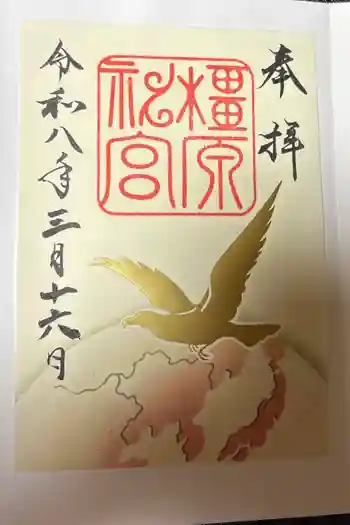 奉拝
橿原神宮
令和八年三月十六日